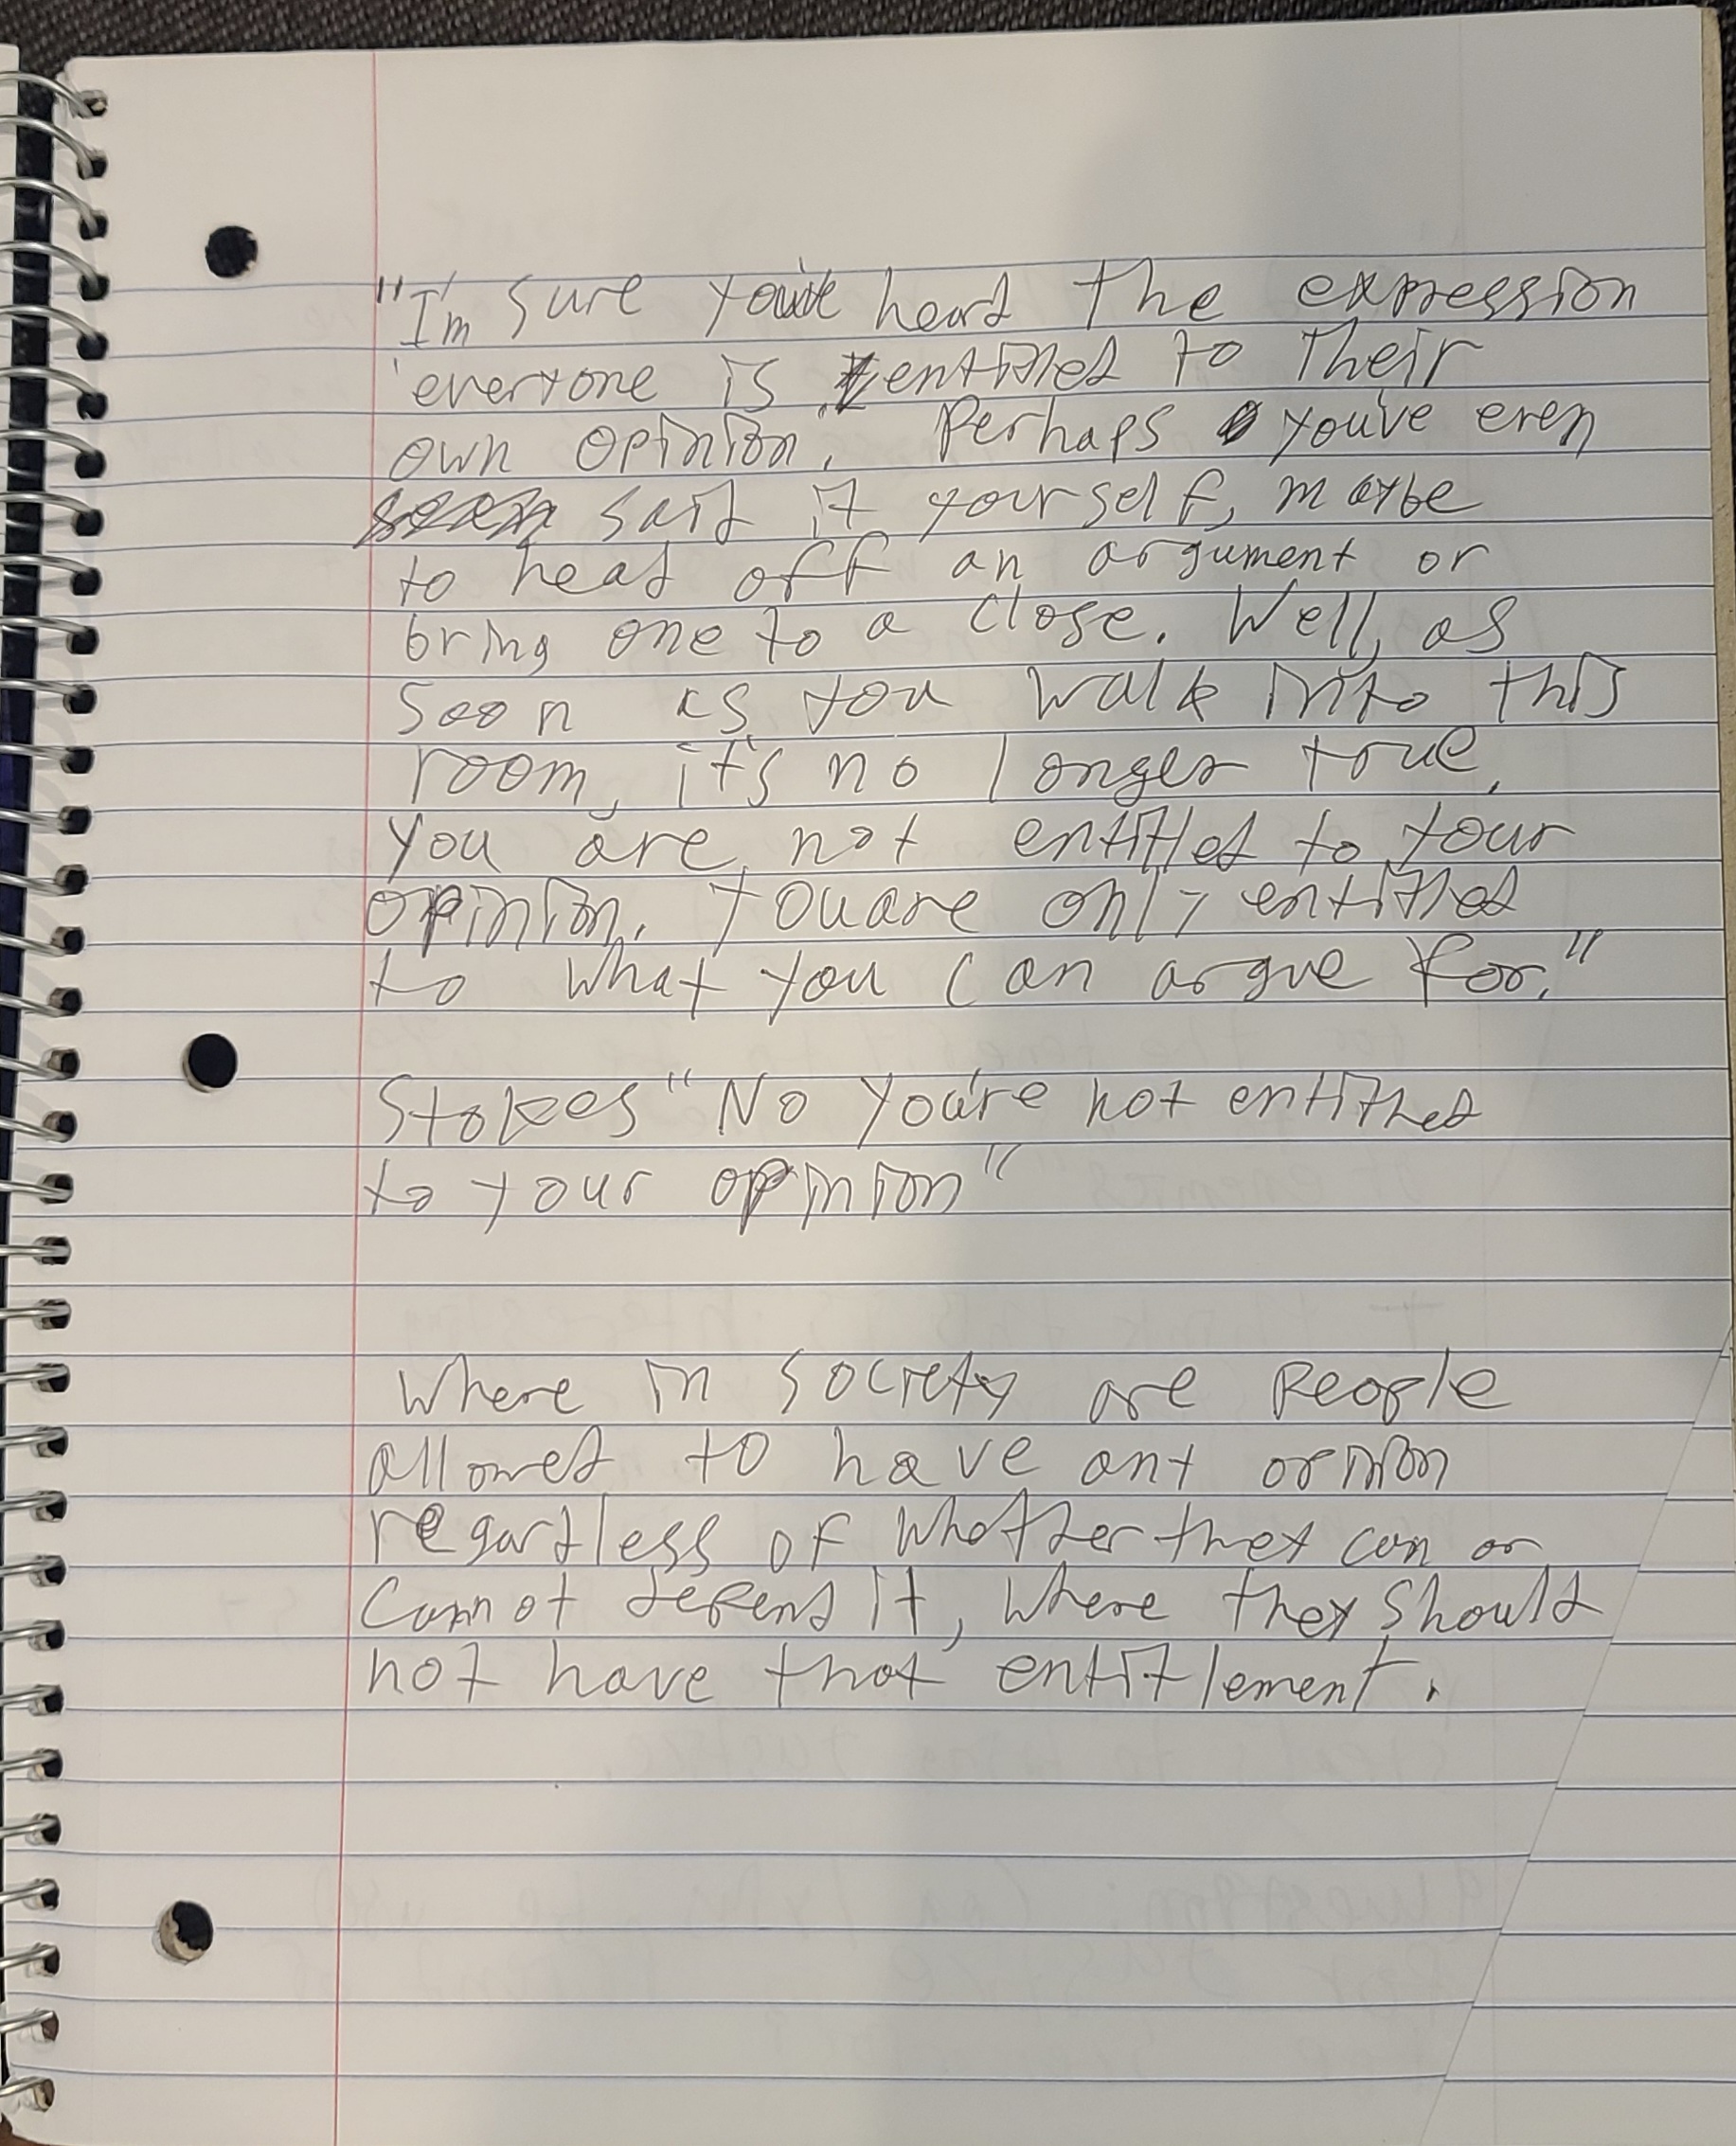 "I'm sure you've heard the expression
'everyone is entitled to their
own opinion'. Perhaps you've even
said it yourself, maybe
to head off an argument or
bring one to a close. Well, as
soon as you walk into this
room, it's no longer true.
You are not entitled to your
opinion. You are only entitled
to what you can argue for."
Stokes "No you're not entitled
to your opinion"
Where in society are people
allowed to have any opinion
regardless of whether they can or
cannot defend it, where they should
not have that entitlement.